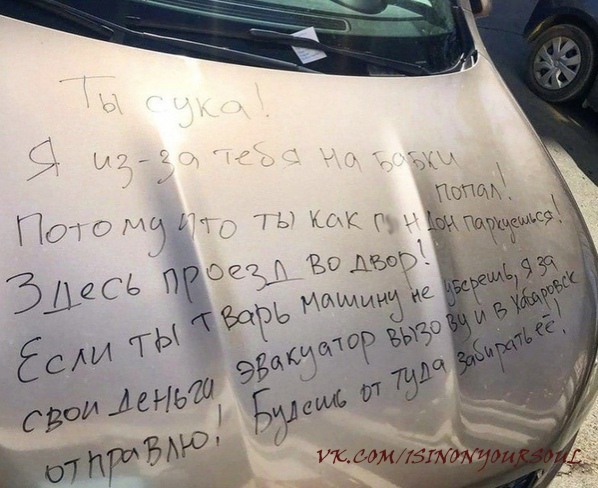 Ты сука!
Я из-за тебя на бабки
попал!
Потому что ты как г, н дон паркуешься!
Здесь проезд во двор!
Если ты тварь машину не уберешь, я за
свои деньга эвакуатор вызову и в Хабаровск
отправлю! Будешь от туда забирать её!
VK.COM/1SINONYOURSOUL